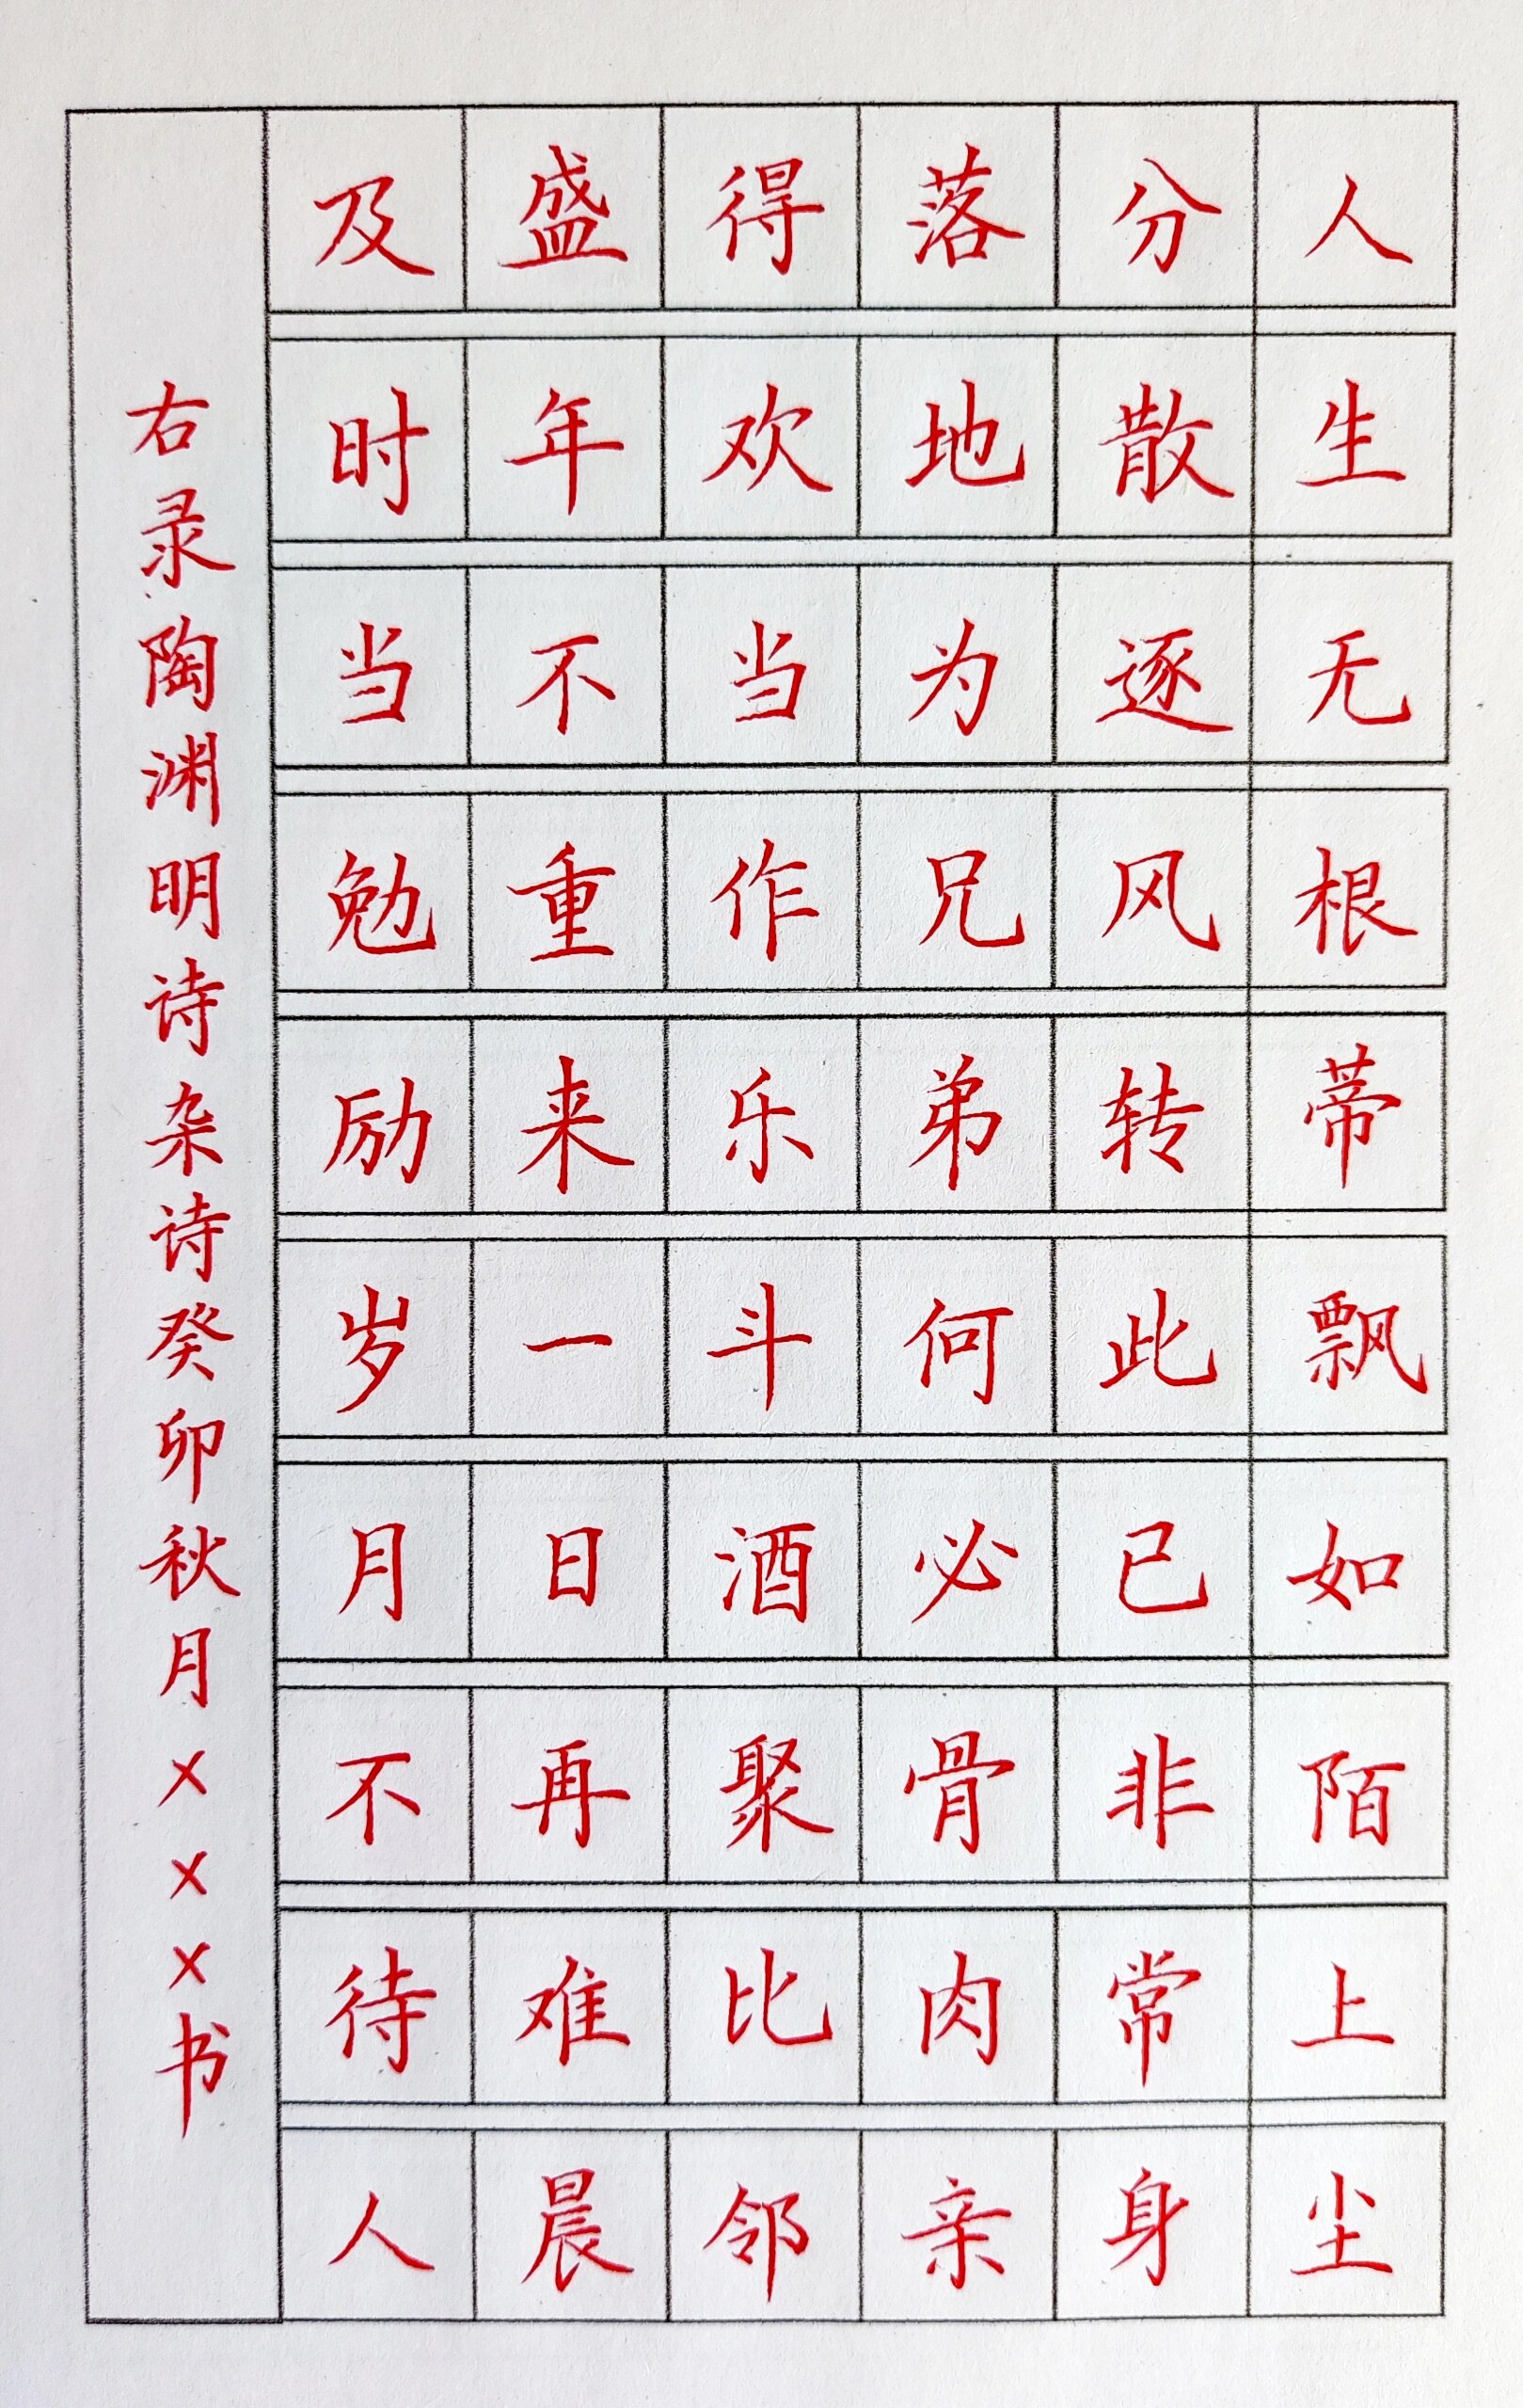 人生无根蒂飘如陌上尘
分散逐风转此已非常身
落地为兄弟何必骨肉亲
得欢当作乐斗酒聚比邻
盛年不重来一日再难晨
及时当勉励岁月不待人
右录陶渊明诗杂诗癸卯秋月×××书